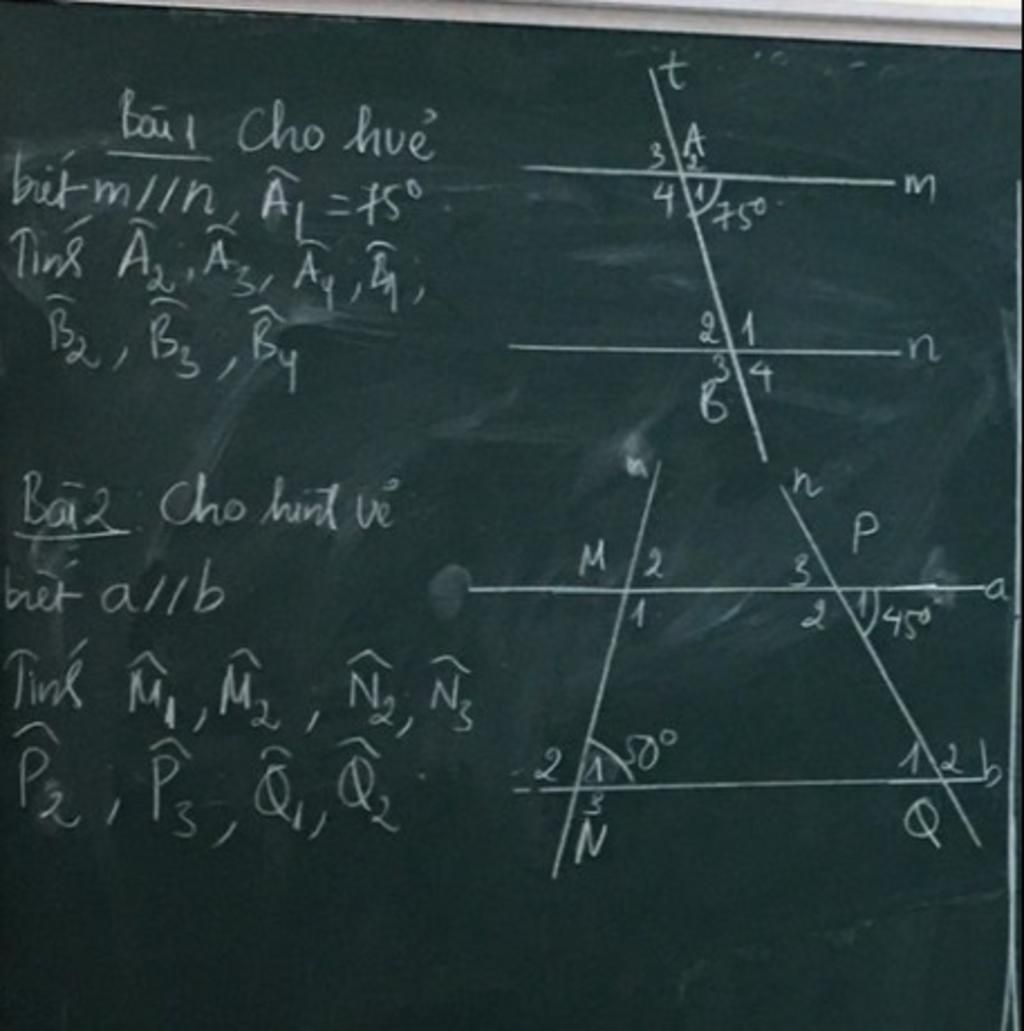 Bài 1 Cho huẻ
biết m//n, Â₁ = 75°
Tính Â₂, Â₃, Â₄, B̂₁,
B̂₂, B̂₃, B̂₄
t
3 A
2
m
4 1 75°
2 1
n
3 4
B
Bài 2: Cho hint vẻ
biết a//b
Tính M̂₁, M̂₂, N̂₂, N̂₃
P̂₂, P̂₃, Q̂₁, Q̂₂
n
P
M 2 3
a
1 2 1 45°
2 1 50° 1 2 b
3
N Q